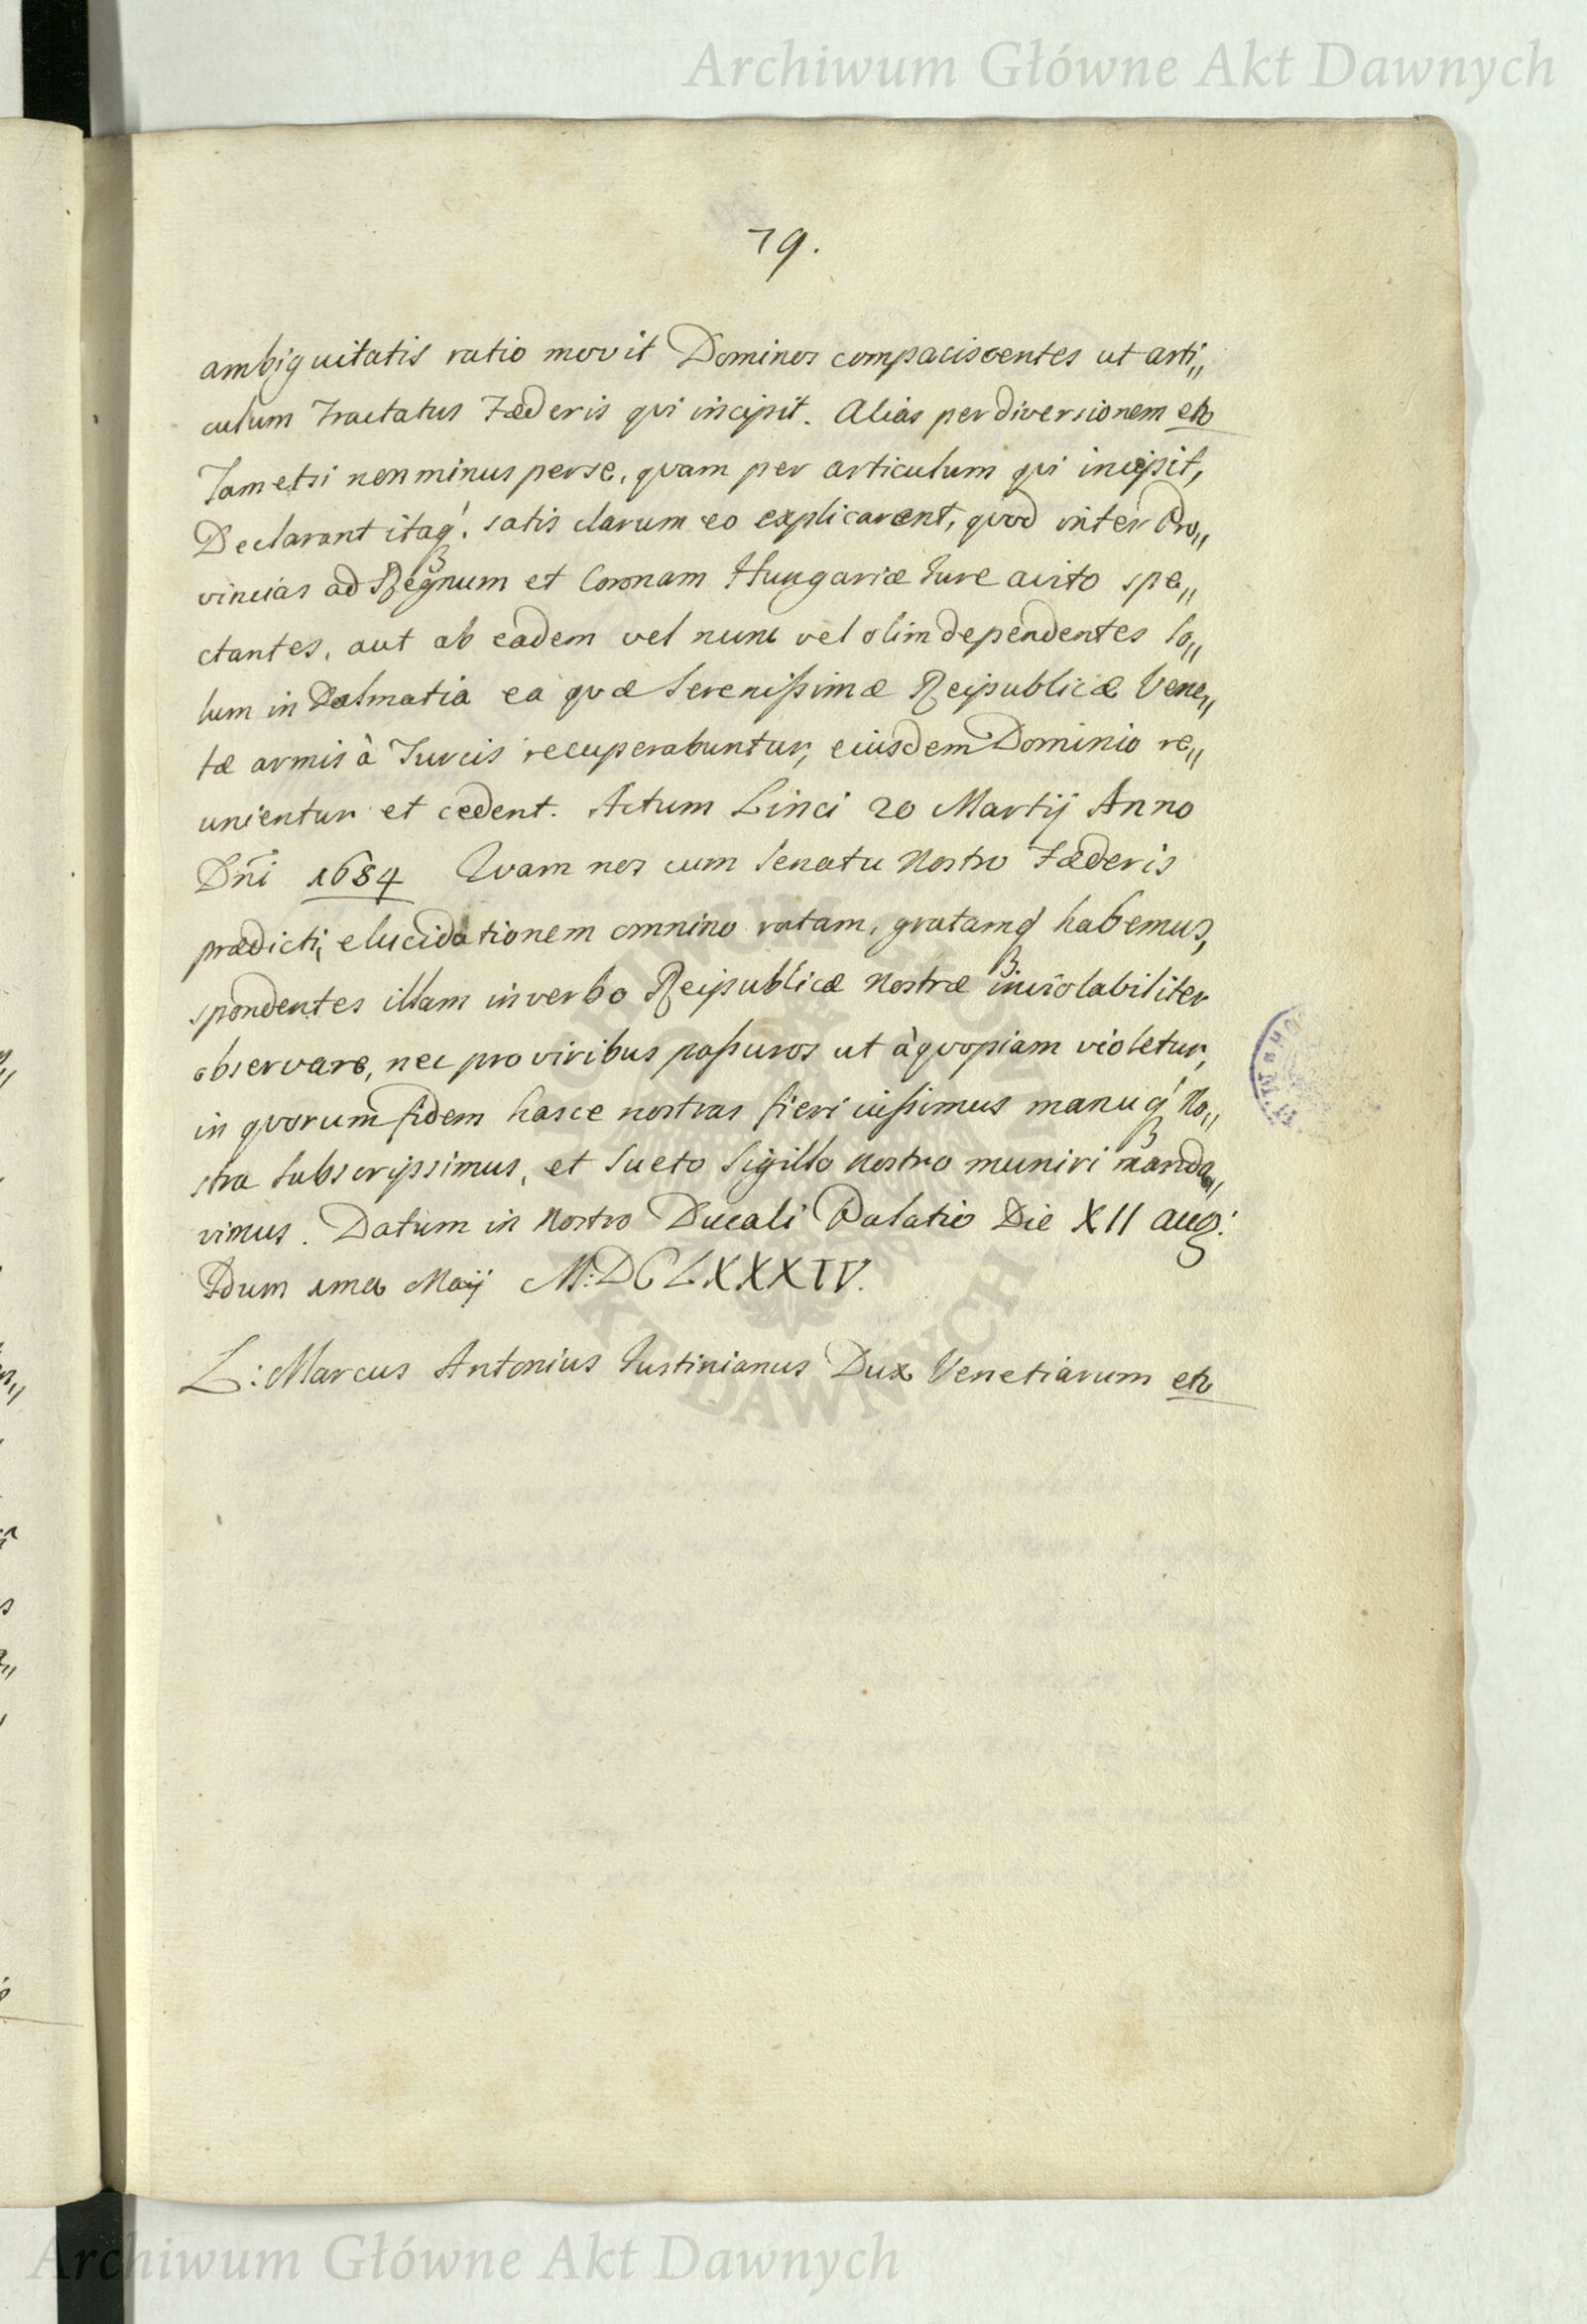 Archiwum Główne Akt Dawnych
79.
ambiguitatis ratio movit Dominos compaciscentes ut arti„
culum Tractatus Fæderis qvi incipit. Alias per diversionem etc
Tametsi non minus per se, qvam per articulum qvi incipit,
Declarant itaq́. satis clarum eo explicarent, qvod inter Pro„
vincias ad Regnum et Coronam Hungariæ Jure avito spe„
ctantes, aut ab eadem vel nunc vel olim dependentes so„
lum in Dalmatia ea qvæ Serenissimæ Reipublicæ Vene„
tæ armis à Turcis recuperabuntur, eiusdem Dominio re„
unientur et cedent. Actum Linci 20 Martij Anno
Dñi 1684 Qvam nos cum Senatu Nostro Fæderis
prædicti, elucidationem omnino ratam, gratamq habemus,
spondentes illam in verbo Reipublicæ Nostræ inviolabiliter
observare, nec pro viribus passuros ut à qvopiam violetur,
in qvorum fidem hasce nostras fieri iussimus manuq́ No„
stra subscripsimus, et sueto Sigillo Nostro muniri manda„
vimus. Datum in Nostro Ducali Palatio Die XII Aug:
Idum ima Maij M:DCLXXXIV.
L: Marcus Antonius Justinianus Dux Venetiarum etc
ARCHIWUM GŁÓWNE
AKT DAWNYCH
Archiwum Główne Akt Dawnych